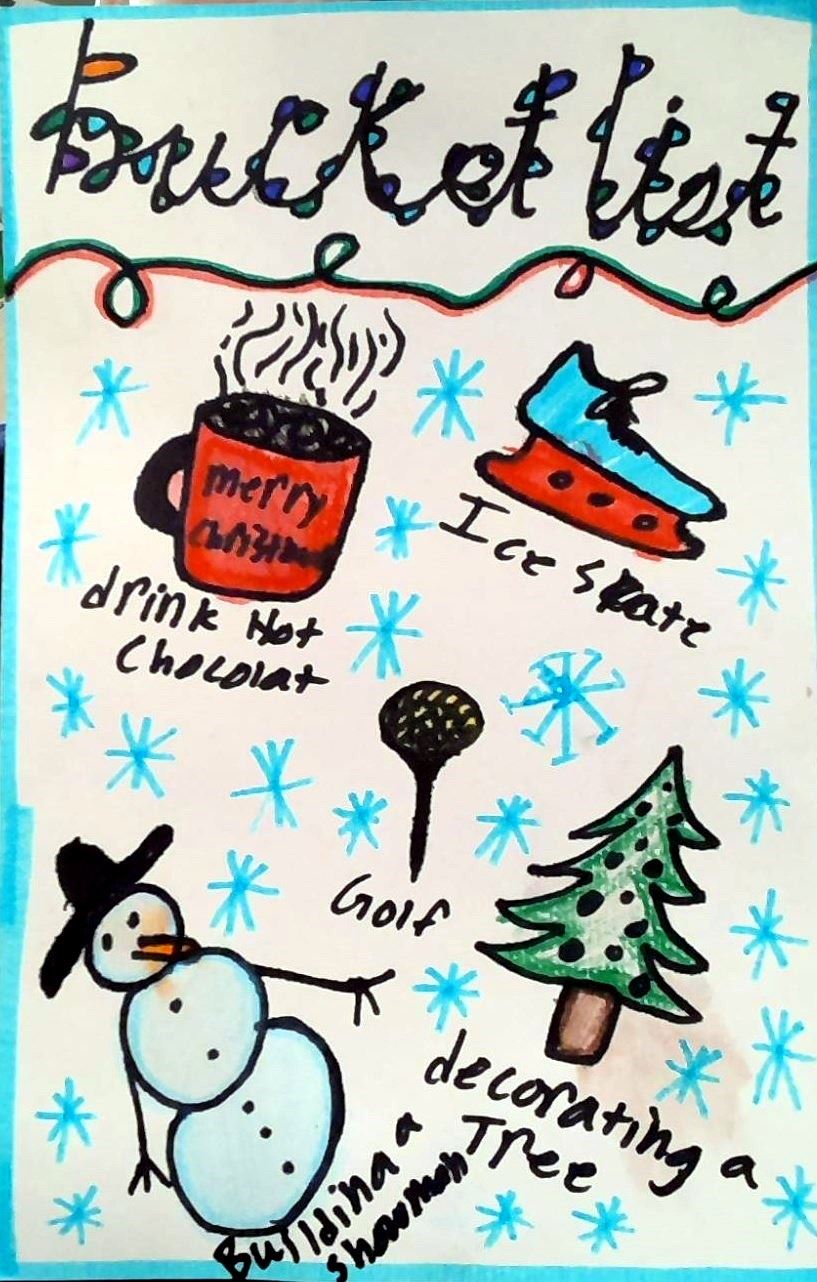 bucket list
merry
christmas
Ice skate
drink Hot
Chocolat
Golf
decorating a
Tree
Building a
snowman